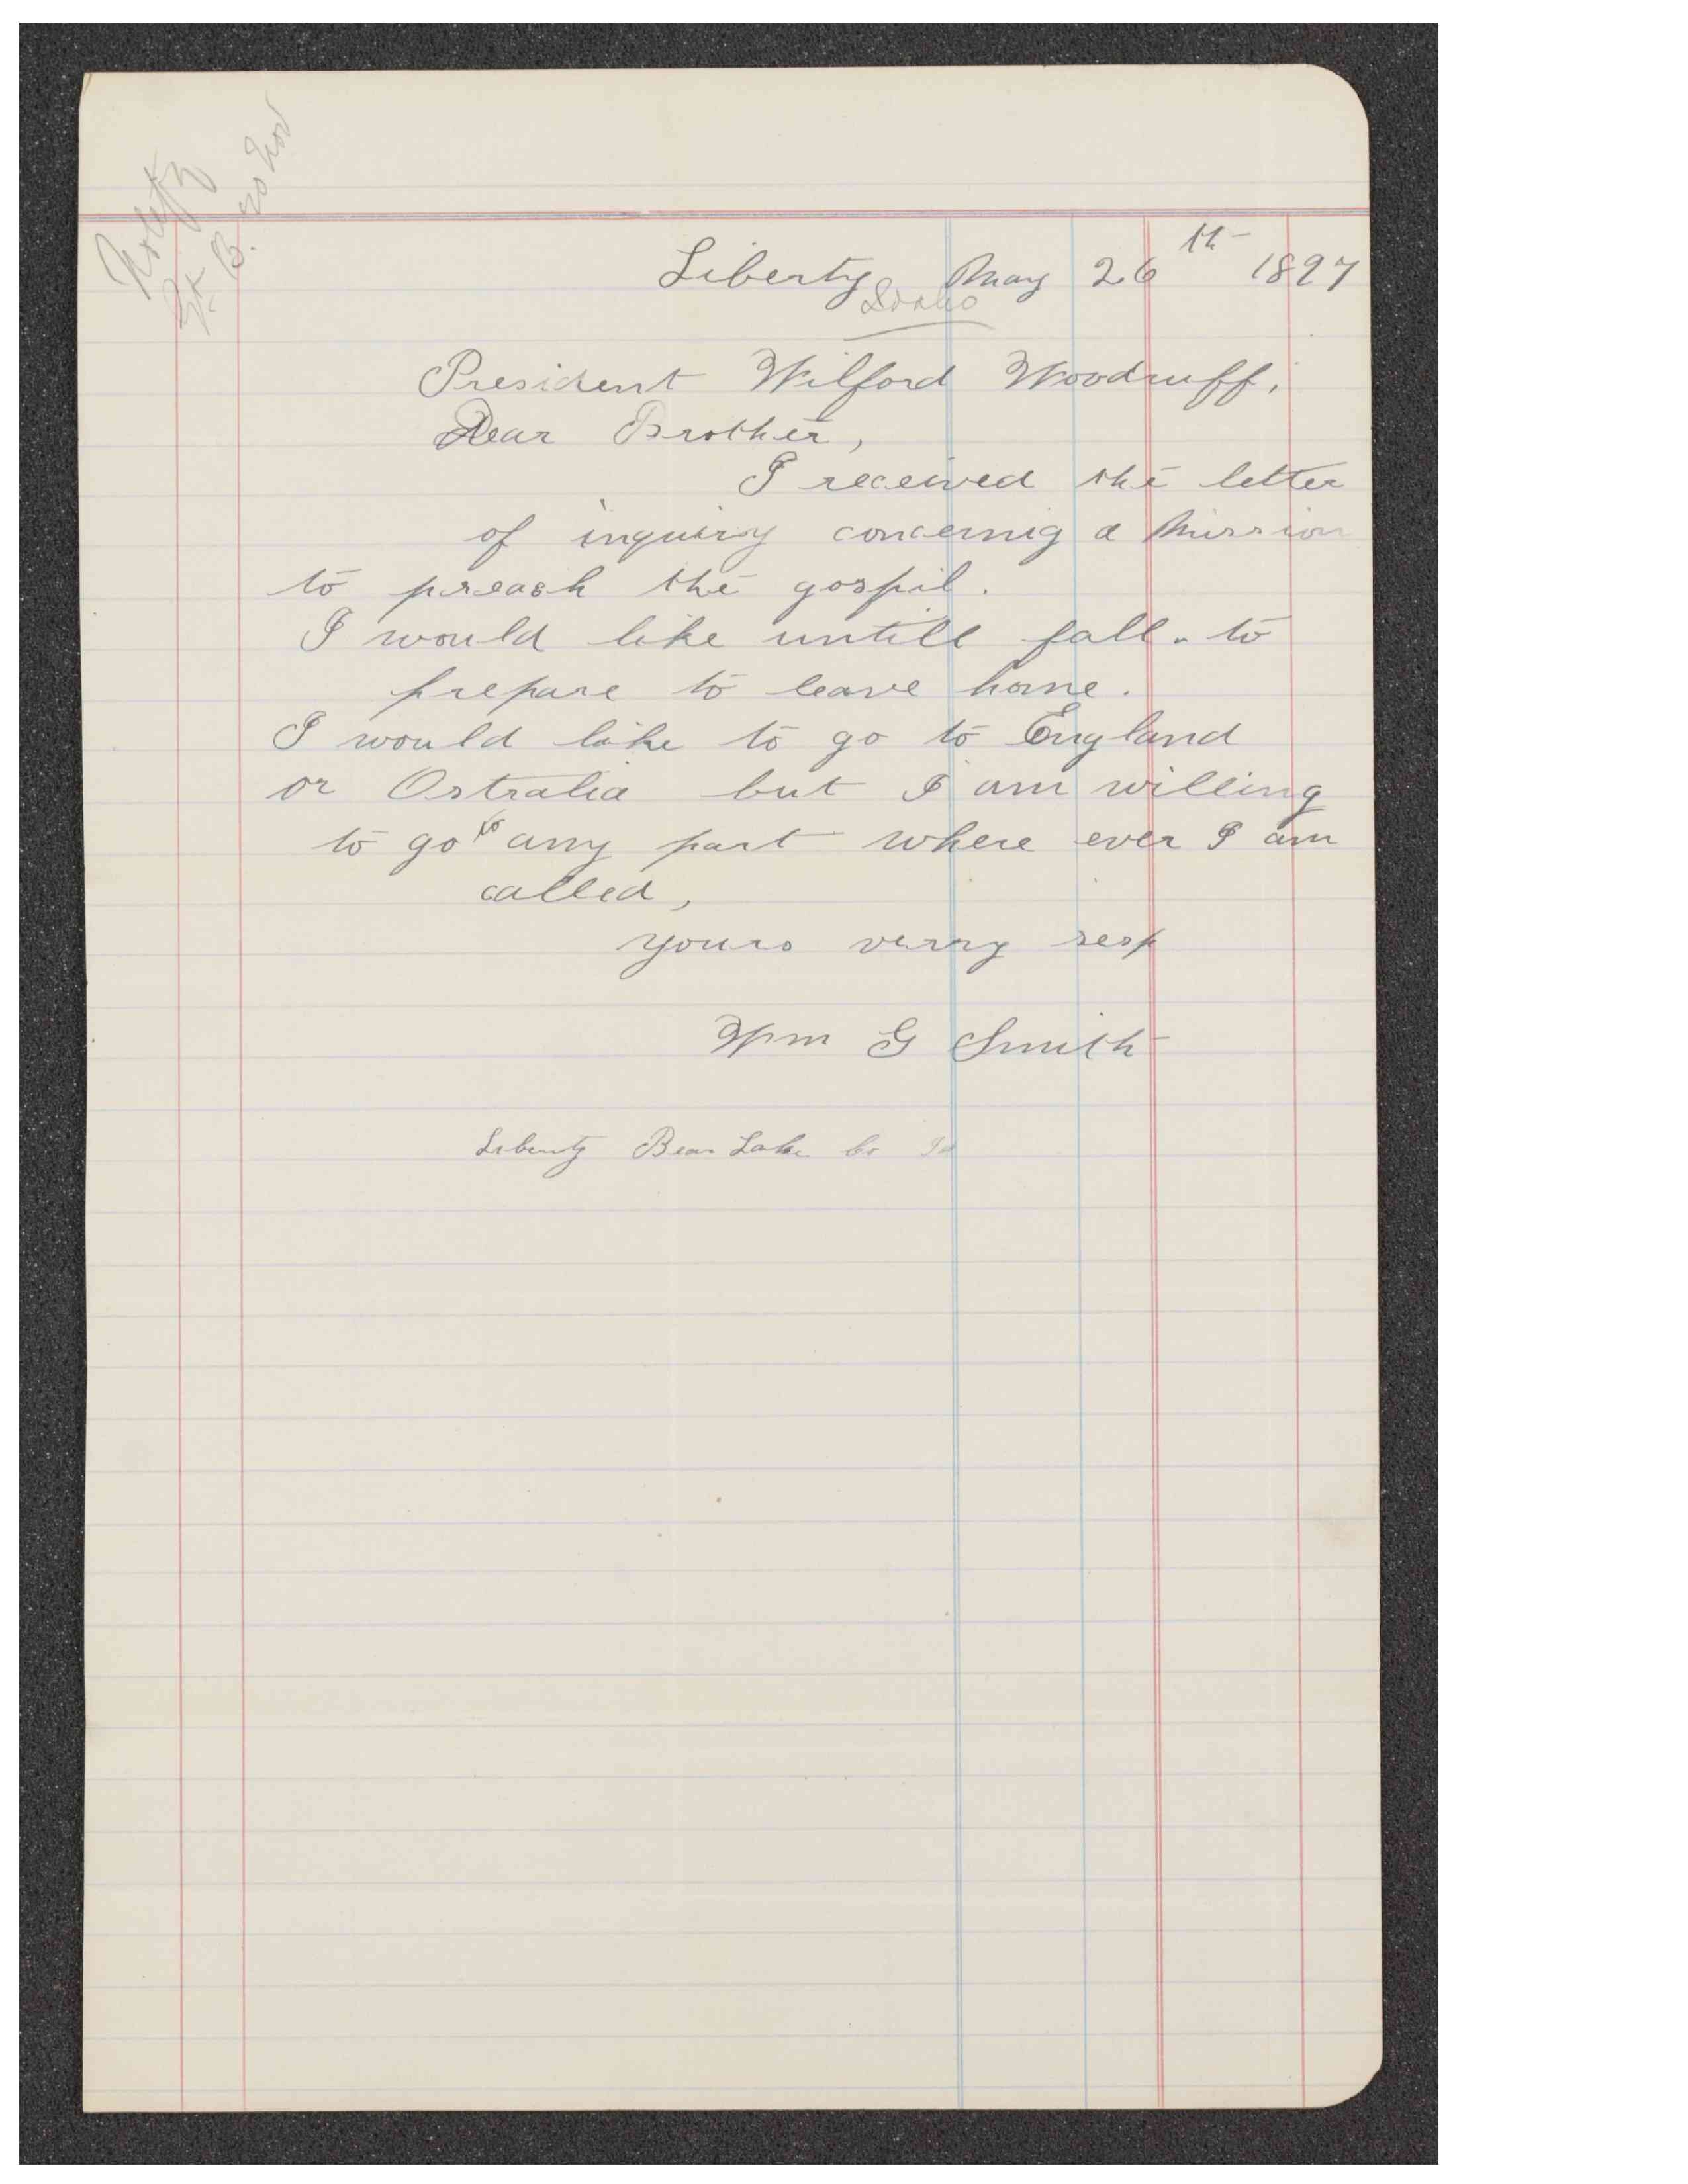 Gt. B. 20 Nov
Liberty May 26th 1897
Idaho
President Wilford Woodruff,
Dear Brother,
I received the letter
of inquiry concernig a Mission
to preach the gospil.
I would like untill fall. to
prepare to leave home.
I would like to go to England
or Ostralia but I am willing
to go to any part where ever I am
called,
yours verry resp
Wm G Smith
Liberty Bear Lake Co Id